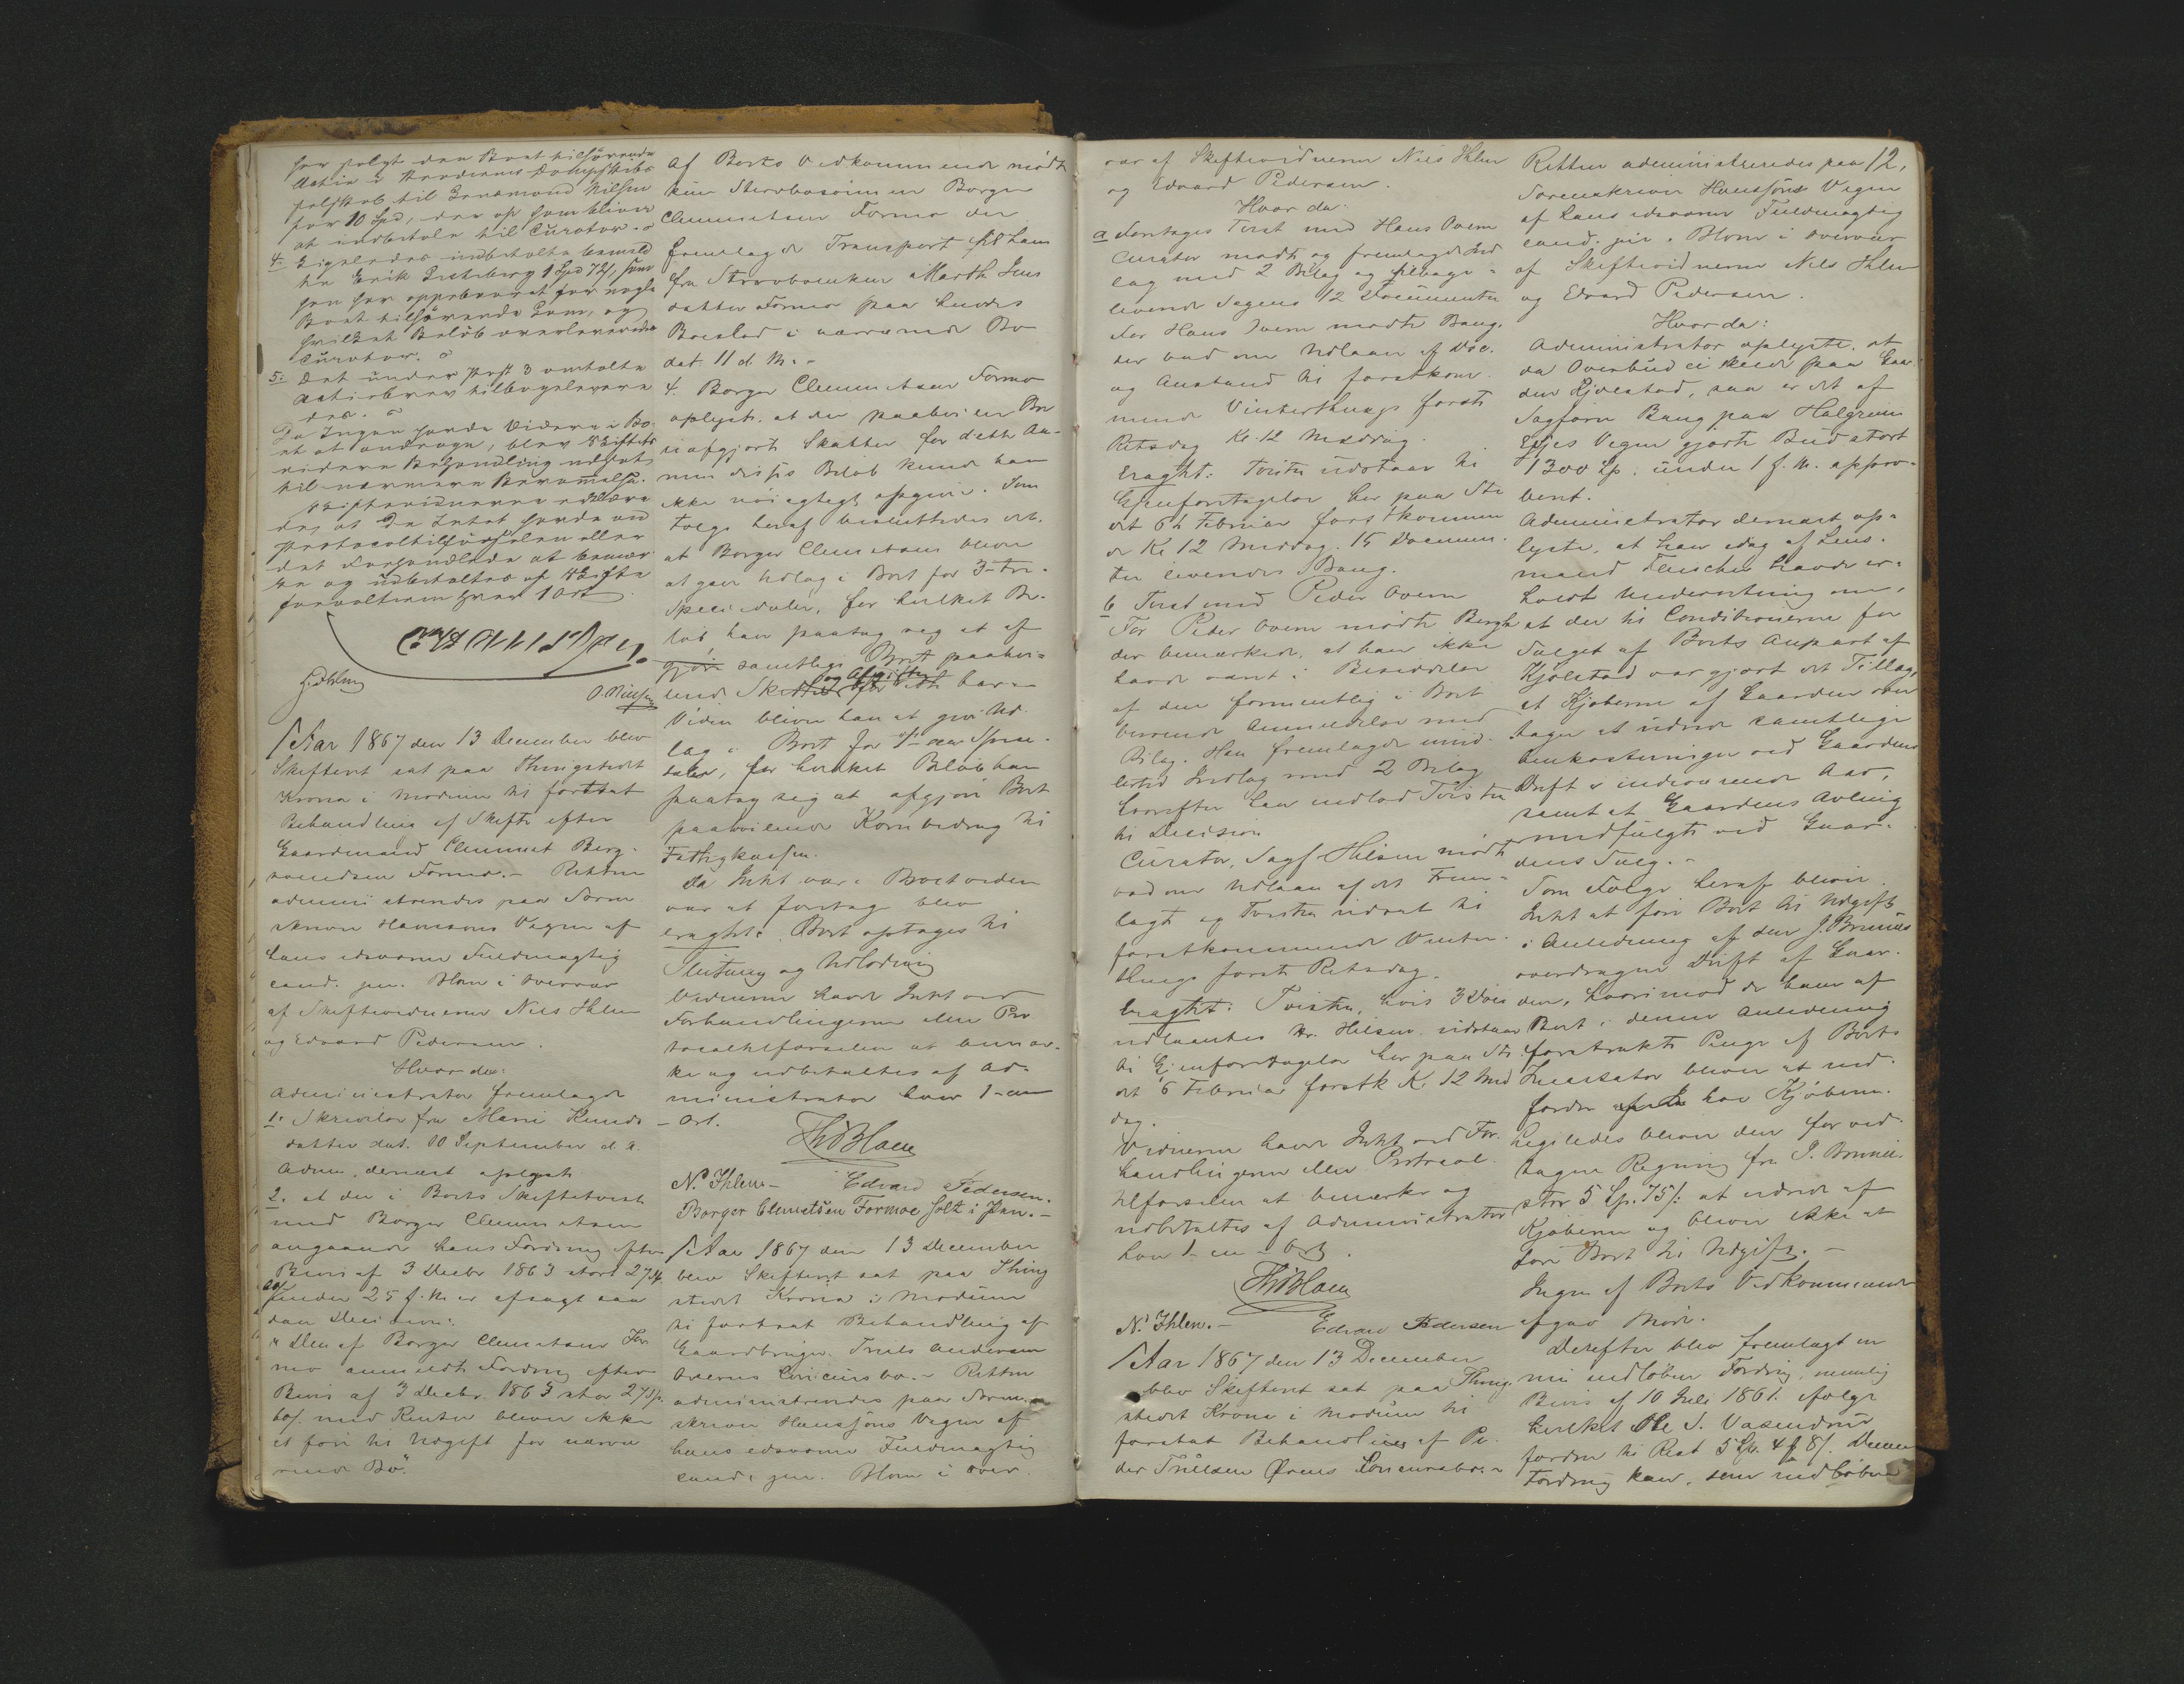 har solgt den Boet tilhørende
Actie i Dampskibs
selskab til Hilsen
for 10 Spd, der som bliver
at indbetale til Curator.
4. Ligeledes indbetalte
Erik 1 Spd 72 s, som
han har oppebaaret for nogle
Boet tilhørende og
hvilket Beløb
Curator.
5. Det under Post 3 omtalte
Actiebrev tilbageleve-
des.
Da Ingen havde videre i Bo-
et at andrage, blev Skiftets
videre Behandling udsat
til nærmere Berammelse.
Skiftevidnerne erklære-
de, at de Intet havde ved
Protocoltilførselen eller
det Forhandlede at bemær-
ke og udbetaltes af Skifte
forvalteren hver 1 Ort.
O. Nielsen
Aar 1867 den 13 December blev
Skifteret sat paa Thingstedet
Krona i Modum til fortsat
Behandling af Skifte efter
Gaardmand Clemmet Berg-
svendsen Formo.- Retten
administreredes paa Soren-
skriver Hanssons Vegne af
hans edsvorne Fuldmægtig
cand. jur. Blom i Overvær
af Skiftevidnerne Niels Ihlen
og Edvard Pedersen.
Hvor da:
Administrator fremlagde
1. Skrivelse fra Marie Knuds-
datter dat. 10 September d. A.
Adm. dernæst oplyste
2. at der i Boets Skiftetvist
med Borger Clemmetsen
angaaende hans Fordring efter
Bevis af 3 Decbr 1863 stort 27 Sp.
60 s under 25 f. M. er afsagt saa
dan Decision:
"Den af Borger Clemetsen For
mo anmeldte Fordring efter
Bevis af 3 Decbr. 1863 stor 27 Sp.
60 s. med Renter bliver ikke
at føre til Udgift for nærvæ
rende Bo".
Af Boets Vedkommende mødte
kun Stervbosønnen Borger
Clemmetsen Formo der
fremlagde Transport til ham
fra Stervboenken Marth Jens
datter Formo paa hendes
Boeslod i nærværende Bo
dat. 11 d. M. -
4. Borger Clemmetsen Formo
oplyste, at der paahviler Bo
uafgjorte Skatter for dette Aar
men disses Beløb kunde han
ikke nøiagtigt opgive. Som
Følge heraf besluttedes det,
at Borger Clemetsen bliver
at give Udlæg i Boet for 3 - tre -
Speciedaler, for hvilket Be-
løb han paatog sig at af
gjøre samtlige Boet paahvi-
lende Skatter og Afgifter
Viden bliver han at give Ud-
læg i Boet for 1 - en Specie-
daler, for hvilket Beløb han
paatog sig at afgjøre Boet
paahvilende Kornbidrag til
Fattigkassen.
Da Intet var i Boet viden
var at foretage blev
eragtet: Boet optages til
Slutning og Udlodning
Vidnerne havde Intet ved
Forhandlingerne eller Pro
tocoltilførselen at bemær-
ke og udbetaltes af Ad-
ministrator hver 1 - en
- Ort.
Th Blom
N. Ihlen - Edvard Pedersen.
Borger Clemetsen Formoe holt i Pen. -
Aar 1867 den 13 December
blev Skifteret sat paa Thing
stedet Krona i Modum
til fortsat Behandling af
Gaardbruger Truls Andersen
Overns Concursbo. - Retten
administreredes paa Soren-
skriver Hanssons Vegne af
hans edsvorne Fuldmægtig
cand. jur. Blom i Over-
vær af Skiftevidnerne Niels Ihlen
og Edvard Pedersen.
Hvor da:
a Foretages Tvist med Hans Overn
Curator mødte og fremlagde Ind
læg med 2 Bilag og tilbage-
leverede Sagens 12 Documenter
For Hans Overn mødte Bang,
der bad om Udlaan af Doc.
og Anstand til førstkom-
mende Vinterthings første
Retsdag Kl. 12 Middag.
Eragtet: Tvisten udstaar til
Gjenforetagelse her paa Ste
det 6te Februar førstkommen
de Kl 12 Middag. 15 Documen-
ter leveredes Bang.
b Tvist med Peder Overn
For Peder Overn mødte Bergh
der bemærkede, at han ikke
havde været i Besiddelse
af den formentlig i Boet
beroende Anmeldelse med
Bilag. Han fremlagde imid-
lertid Indlæg med 2 Bilag
hvorefter han indlod Tvisten
til Decision
Curator, Sagf. Hilsen mødte
bad om Udlaan af det Frem-
lagte og Tvisten udsat til
førstkommende Vinter-
things første Retsdag.
Eragtet: Tvisten, hvis 3 Doc
udlaantes Hr. Hilsen udstaar
til Gjenforetagelse her paa Ste
det 6 Februar førstk. Kl. 12 Mid
dag.
Vidnerne havde Intet ved For-
handlingerne eller Protocol-
tilførselen at bemærke og
udbetaltes af Administrator
hver 1 - en - Ort.
Th Blom
N. Ihlen. - Edvard Pedersen
Aar 1867 den 13 December
blev Skifteret sat paa Thing-
stedet Krona i Modum til
fortsat Behandling af Pe-
der Trulsen Øvrens Concursbo. -
12,
Retten administreredes paa
Sorenskriver Hanssøns Vegne
af hans edsvorne Fuldmægtig
cand. jur. Blom i Overvær
af Skiftevidnerne Niels Ihlen
og Edvard Pedersen.
Hvor da:
Administrator oplyste, at
da Overbud ei skede paa Gaar-
den Kjølstad, saa er det af
Sagfører Bang paa Halgrim
Vegne gjorte Bud stort
1300 Sp. under 1 f. M. appro-
beret.
Administrator dernæst op-
lyste, at han idag af Lens-
mand havde er-
holdt Underretning om,
at der til Conditionerne for
Salget af Boets Anpart af
Kjølstad var gjort det Tillæg,
at Kjøberen af Gaarden over
tager at udrede samtlige
Omkostninger ved Gaardens
Drift i indeværende Aar,
samt at Gaardens Avling
medfulgte ved Gaar-
dens Salg. -
Som Følge heraf bliver
Intet at føre Boet til Udgift
i Anledning af den J. Brunæs
overdragne Drift af Gaar-
den, hvorimod de ham af
Boet i denne Anledning
forstrakte Penge af Boets
Incassator bliver at ind-
fordre hos Kjøberen.
Ligeledes bliver den før ved-
tagne Regning fra J. Brunæs
stor 5 Sp. 75 s. at udrede af
Kjøberen og bliver ikke at
føre Boet til Udgift. -
Ingen af Boets Vedkommende
afgav Møde.
Derefter blev fremlagt en
ny indløben Fordring, nemlig
Bevis af 10 Juli 1861. ifølge
hvilket Ole S. Vasendrud
fordrer til Rest 5 Sp. 4 8 s. Denne
Fordring kan, som indløben